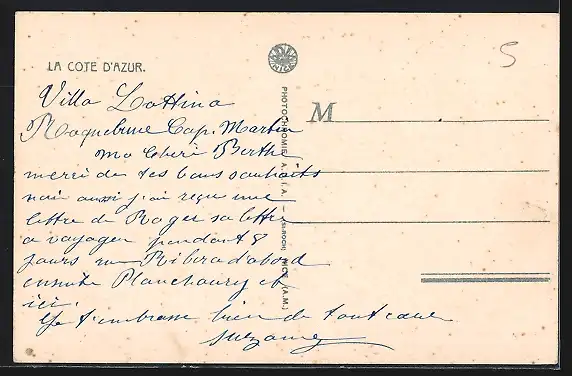 LA COTE D'AZUR.
5
Villa Lottina
Roquebrune Cap. Martin
Ma cheri Berthe
merci de tes bons souhaits
moi aussi j'ai reçu une
lettre de Roger sa lettre
a voyager pendant 8
jours rue Ribera d'abord
ensuite Planchoury et
ici.
Je t'embrasse bien de tout cœur
Suzanne
PHOTOCHROMIE
NICE (A.M.)
M